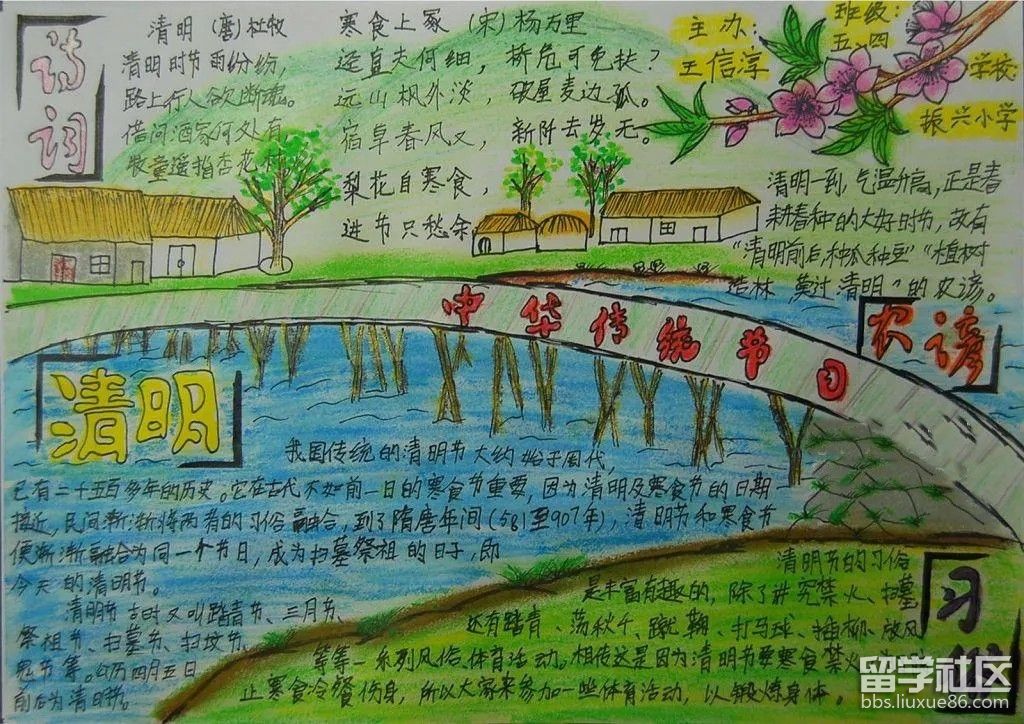 诗词
清明 (唐)杜牧
清明时节雨纷纷,
路上行人欲断魂。
借问酒家何处有
牧童遥指杏花村
寒食上冢 (宋)杨万里
迳直夫何细, 桥危可免扶?
远山枫外淡, 破屋麦边孤。
宿草春风又, 新阡去岁无。
梨花自寒食,
进节只愁余
主办:
王信淳
班级:
五.四
学校:
振兴小学
清明一到,气温升高,正是春
耕春种的大好时节,故有
“清明前后,种瓜种豆”“植树
造林 莫过清明”的农谚。
农谚
中华传统节日
清明
我国传统的清明节大约始于周代,
已有二千五百多年的历史。它在古代不如前一日的寒食节重要,因为清明及寒食节的日期
接近,民间渐渐将两者的习俗融合,到了隋唐年间(581至907年),清明节和寒食节
便渐渐融合为同一个节日,成为扫墓祭祖的日子,即
今天的清明节。
清明节古时又叫踏青节、三月节、
祭祖节、扫墓节、扫坟节、
鬼节等。公历四月五日
前后为清明节。
习
清明节的习俗
是丰富有趣的,除了讲究禁火、扫墓
还有踏青、荡秋千、蹴鞠、打马球、插柳、放风
等等一系列风俗体育活动。相传这是因为清明节要寒食禁火
止寒食冷餐伤身,所以大家来参加一些体育活动,以锻炼身体。
留学社区
bbs.liuxue86.com